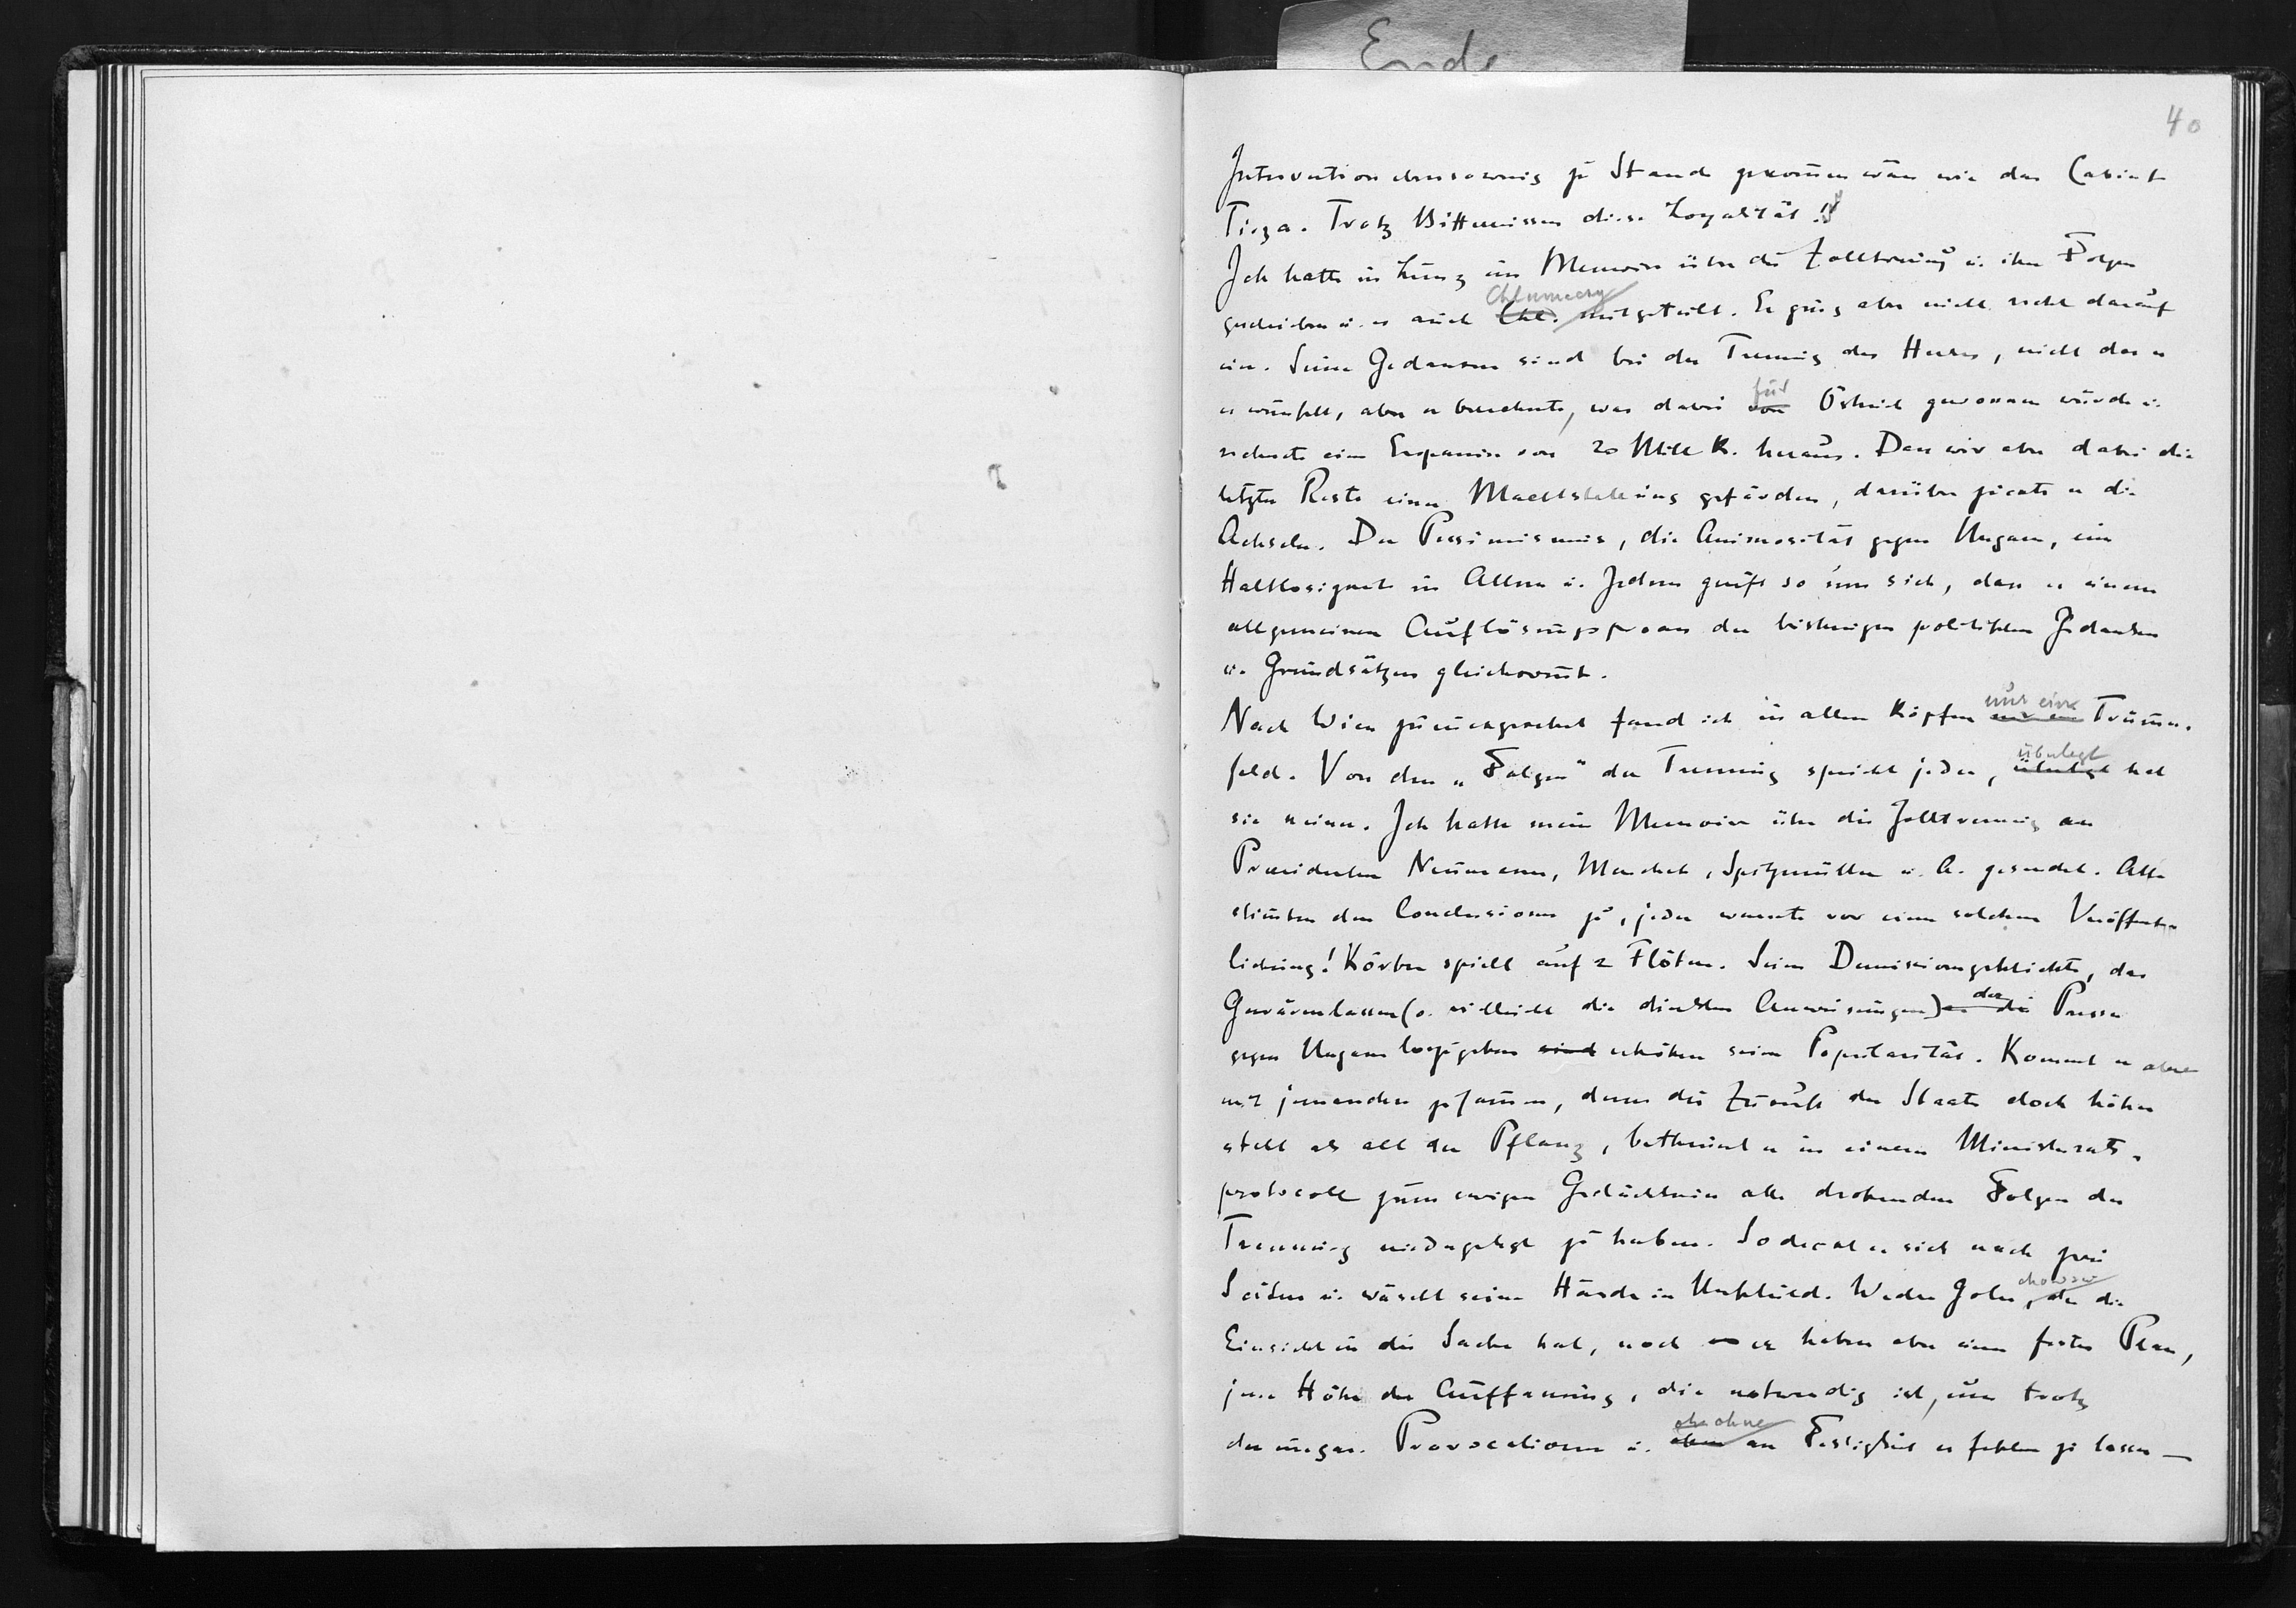 Ende
40
Intervention ebensowenig zu Stande gekommen wäre wie das Cabinet
Tisza. Trotz Bittnissen diese Loyalität!
Ich hatte in Linz ein Memoire über die Zolltrennung u. ihre Folgen
Chlumecky
geschrieben u. es auch Chl. mitgeteilt. Er ging aber nicht recht darauf
ein. Seine Gedanken sind bei der Trennung des Heeres, nicht dass er
für
es wünscht, aber er berechnete, was dabei von Östreich gewonnen würde u.
rechnete eine Ersparnis von 20 Mill K. heraus. Dass wir aber dabei die
letzten Reste einer Machtstellung gefärden, darüber zuckte er die
Achseln. Der Pessimismus, die Animosität gegen Ungarn, eine
Haltlosigkeit in Allem u. Jedem greift so um sich, dass es einem
allgemeinen Auflösungsprocess der bisherigen politischen Gedanken
u. Grundsätzen gleichkommt.
nur ein
Nach Wien zurückgekehrt fand ich in allen Köpfen nur ein Trümmer-
überlegt
feld. Von den „Folgen" der Trennung spricht jeder, überlegt hat
sie keiner. Ich hatte mein Memoire über die Zolltrennung an
Praesidenten Neumann, Marchet, Spitzmüller u. A. gesendet. Alle
stimmten den Conclusionen zu, jeder warnte vor einer solchen Veröffent-
lichung! Körber spielt auf 2 Flöten. Seine Demissionsgeschichte, das
der
Gewärenlassen (o. vielleicht die direkten Anweisungen) an die Presse
gegen Ungarn loszugehen sind erhöhen seine Popularität. Kommt er aber
mit jemanden zusammen, dem die Zukunft des Staates doch höher
steht als all der Pflanz, betheuert er in einem Ministerrats-
protocoll zum ewigen Gedächtnis alle drohenden Folgen der
Trennung niedergelegt zu haben. So deckt er sich nach zwei
Seiten u. wäscht seine Hände in Unschuld. Weder Goluchowski, der die
Einsicht in die Sache hat, noch er haben aber einen festen Plan,
jene Höhe der Auffassung, die notwendig ist, um trotz
ohne
der ungar. Provocationen u. ohne an Festigkeit es fehlen zu lassen —